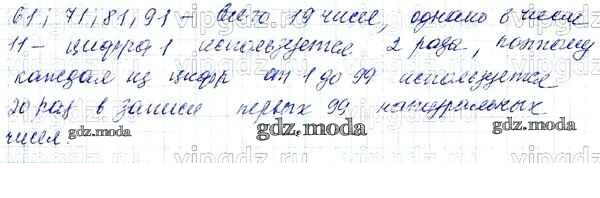 61; 71; 81; 91 – Всего 19 чисел, однако в числе
11 – цифра 1 используется 2 раза, поэтому
каждая из цифр от 1 до 99 используется
20 раз в записи первых 99 натуральных
чисел.
gdz.moda
gdz.moda
gdz.moda